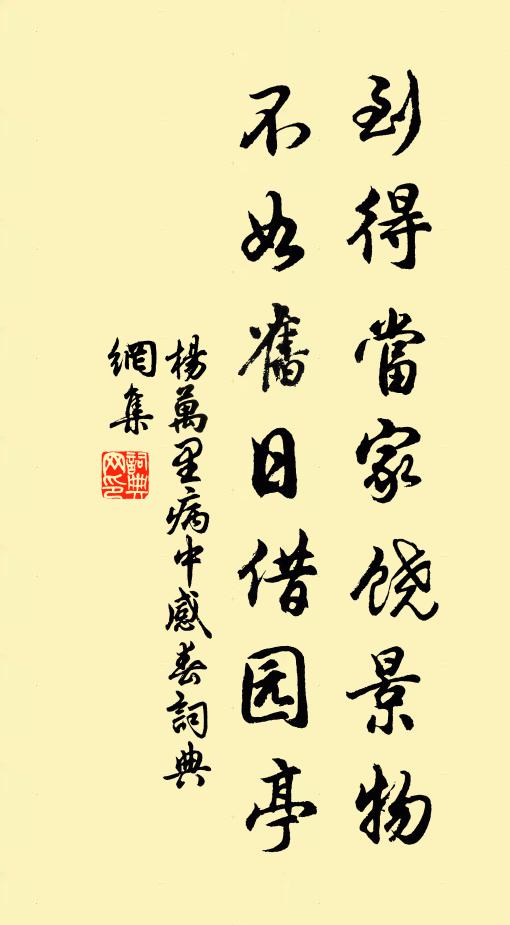 到得當家饶景物
不如舊日借园亭
楊萬里病中感春詞典
網集
詞典
网印